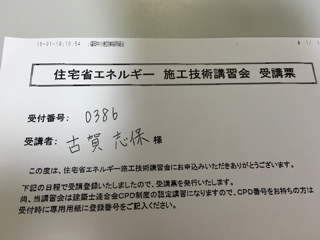 15-01-19;10:54
住宅省エネルギー 施工技術講習会 受講票
受付番号: 0386
受講者: 古賀 志保 様
この度は、住宅省エネルギー施工技術講習会にお申込みいただきありがとうございます。
下記の日程で受講登録いたしましたので、受講票を発行いたします。
尚、当講習会は建築士連合会CPD制度の認定講習になりますので、CPD番号をお持ちの方は
受付時に専用用紙に登録番号をご記入ください。